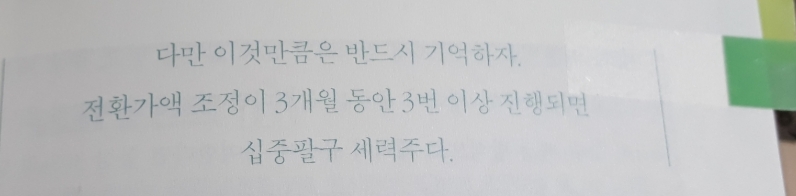 다만 이것만큼은 반드시 기억하자.
전환가액 조정이 3개월 동안 3번 이상 진행되면
십중팔구 세력주다.